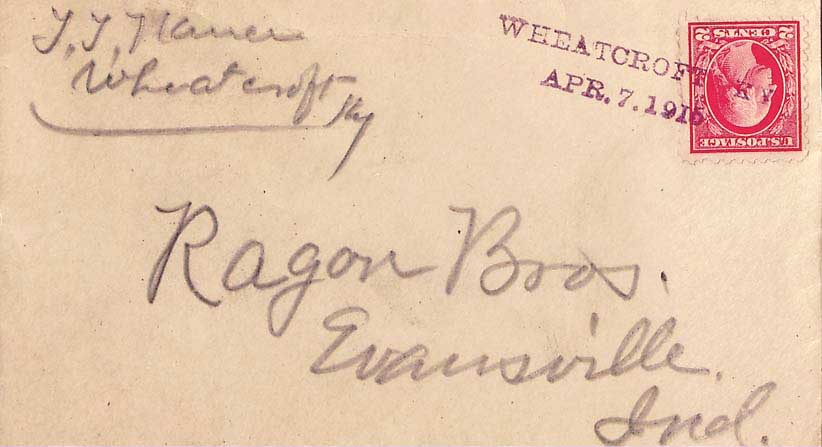 Wheatcroft
Ky
WHEATCROFT KY
APR. 7. 1915
2 CENTS 2
U.S. POSTAGE
Ragon Bros.
Evansville.
Ind.